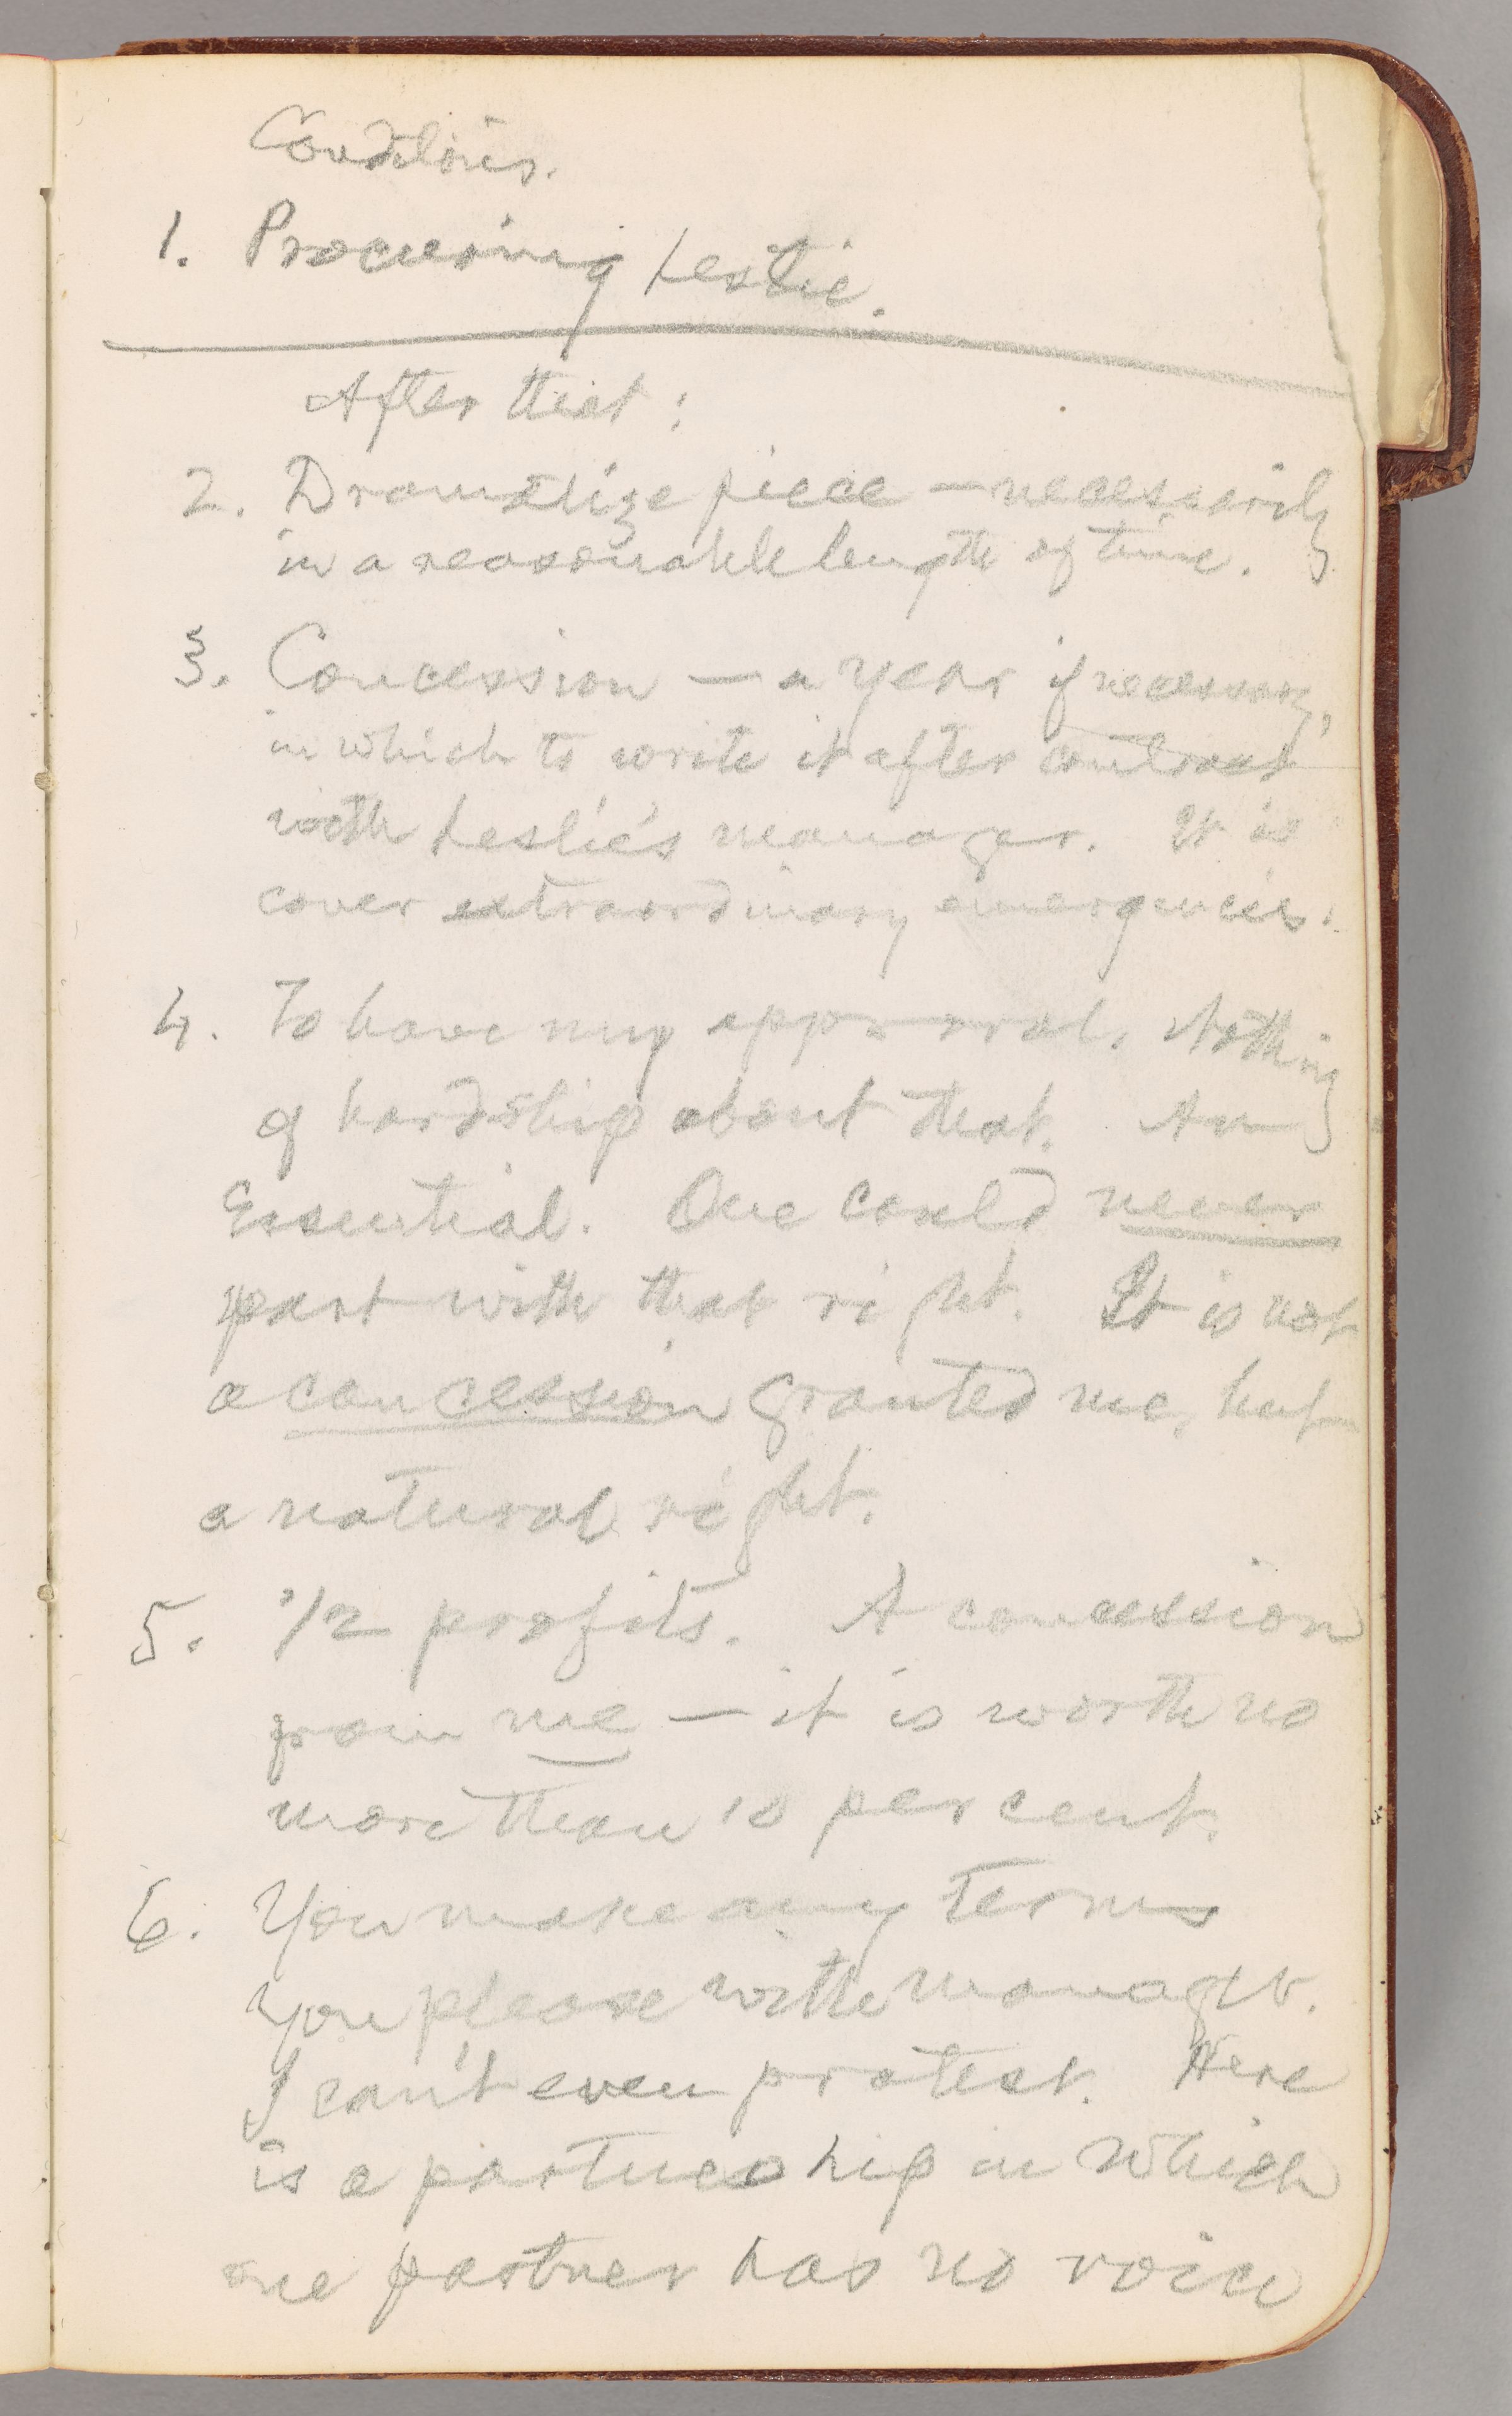 Conditions.
1. Procuring Leslie.
After that:
2. Dramatize piece — necessarily
in a reasonable length of time.
3. Concession — a year if necessary,
in which to write it after contract
with Leslie's manager. It is
cover extraordinary emergencies.
4. To have my approval. Nothing
of hardship about that. An
Essential. One could never
part with that right. It is not
a concession granted me, but
a natural right.
5. 1/2 profits. A concession
from me — it is worth no
more than 10 per cent.
6. You make any terms
you please with manager.
I can't even protest. Here
is a partnership in which
one partner has no voice